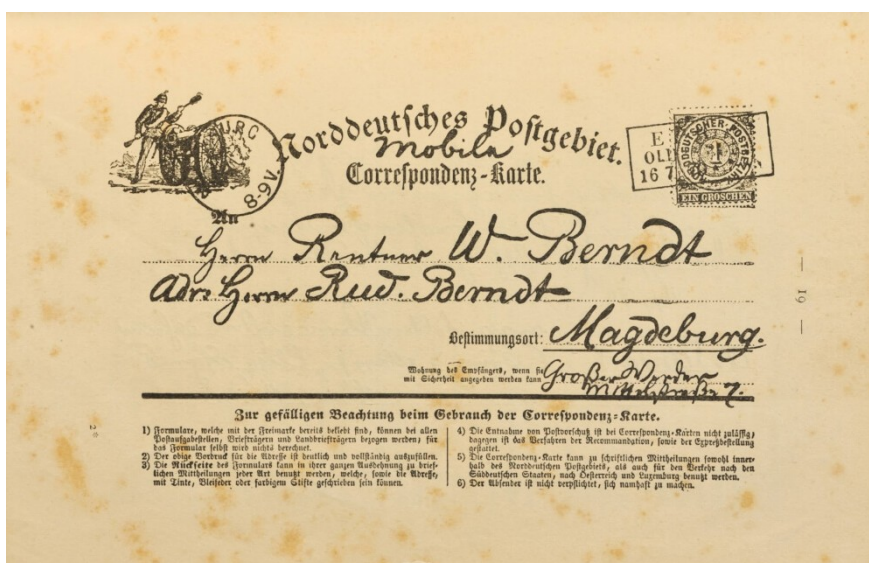 Norddeutsches Postgebiet.
Mobila
Correspondenz-Karte.
URG
8-9V.
E
OL
16 7
NORDDEUTSCHER POSTBEZIRK
1
EIN GROSCHEN
An
Herrn Rentner W. Berndt
Adr. Herrn Rud. Berndt
Bestimmungsort: Magdeburg.
Wohnung des Empfängers, wenn sie
mit Sicherheit angegeben werden kann
Großer Werder
Mittelstraße 7.
— 19 —
2*
Zur gefälligen Beachtung beim Gebrauch der Correspondenz-Karte.
1) Formulare, welche mit der Freimarke bereits beklebt sind, können bei allen
Postausgabestellen, Briefträgern und Landbriefträgern bezogen werden; für
das Formular selbst wird nichts berechnet.
2) Der obige Vordruck für die Adresse ist deutlich und vollständig auszufüllen.
3) Die Rückseite des Formulars kann in ihrer ganzen Ausdehnung zu brief-
lichen Mittheilungen jeder Art benutzt werden, welche, sowie die Adresse,
mit Tinte, Bleifeder oder farbigem Stifte geschrieben sein können.
4) Die Entnahme von Postvorschuß ist bei Correspondenz-Karten nicht zulässig,
dagegen ist das Verfahren der Recommandation, sowie der Expreßbestellung
gestattet.
5) Die Correspondenz-Karte kann zu schriftlichen Mittheilungen sowohl inner-
halb des Norddeutschen Postgebiets, als auch für den Verkehr nach den
Süddeutschen Staaten, nach Oesterreich und Luxemburg benutzt werden.
6) Der Absender ist nicht verpflichtet, sich namhaft zu machen.